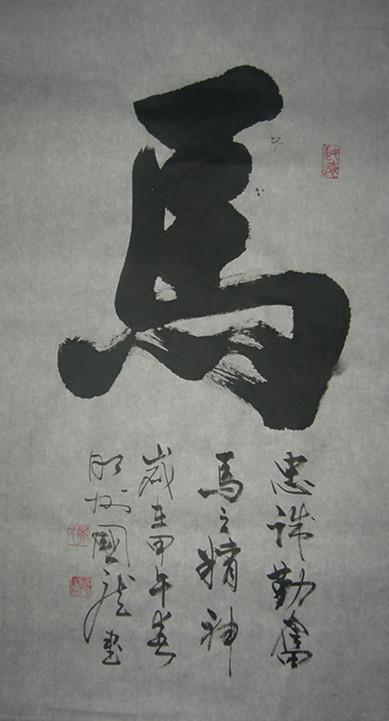 馬
忠誠勤奮
馬之精神
歲在甲午春
國龍書